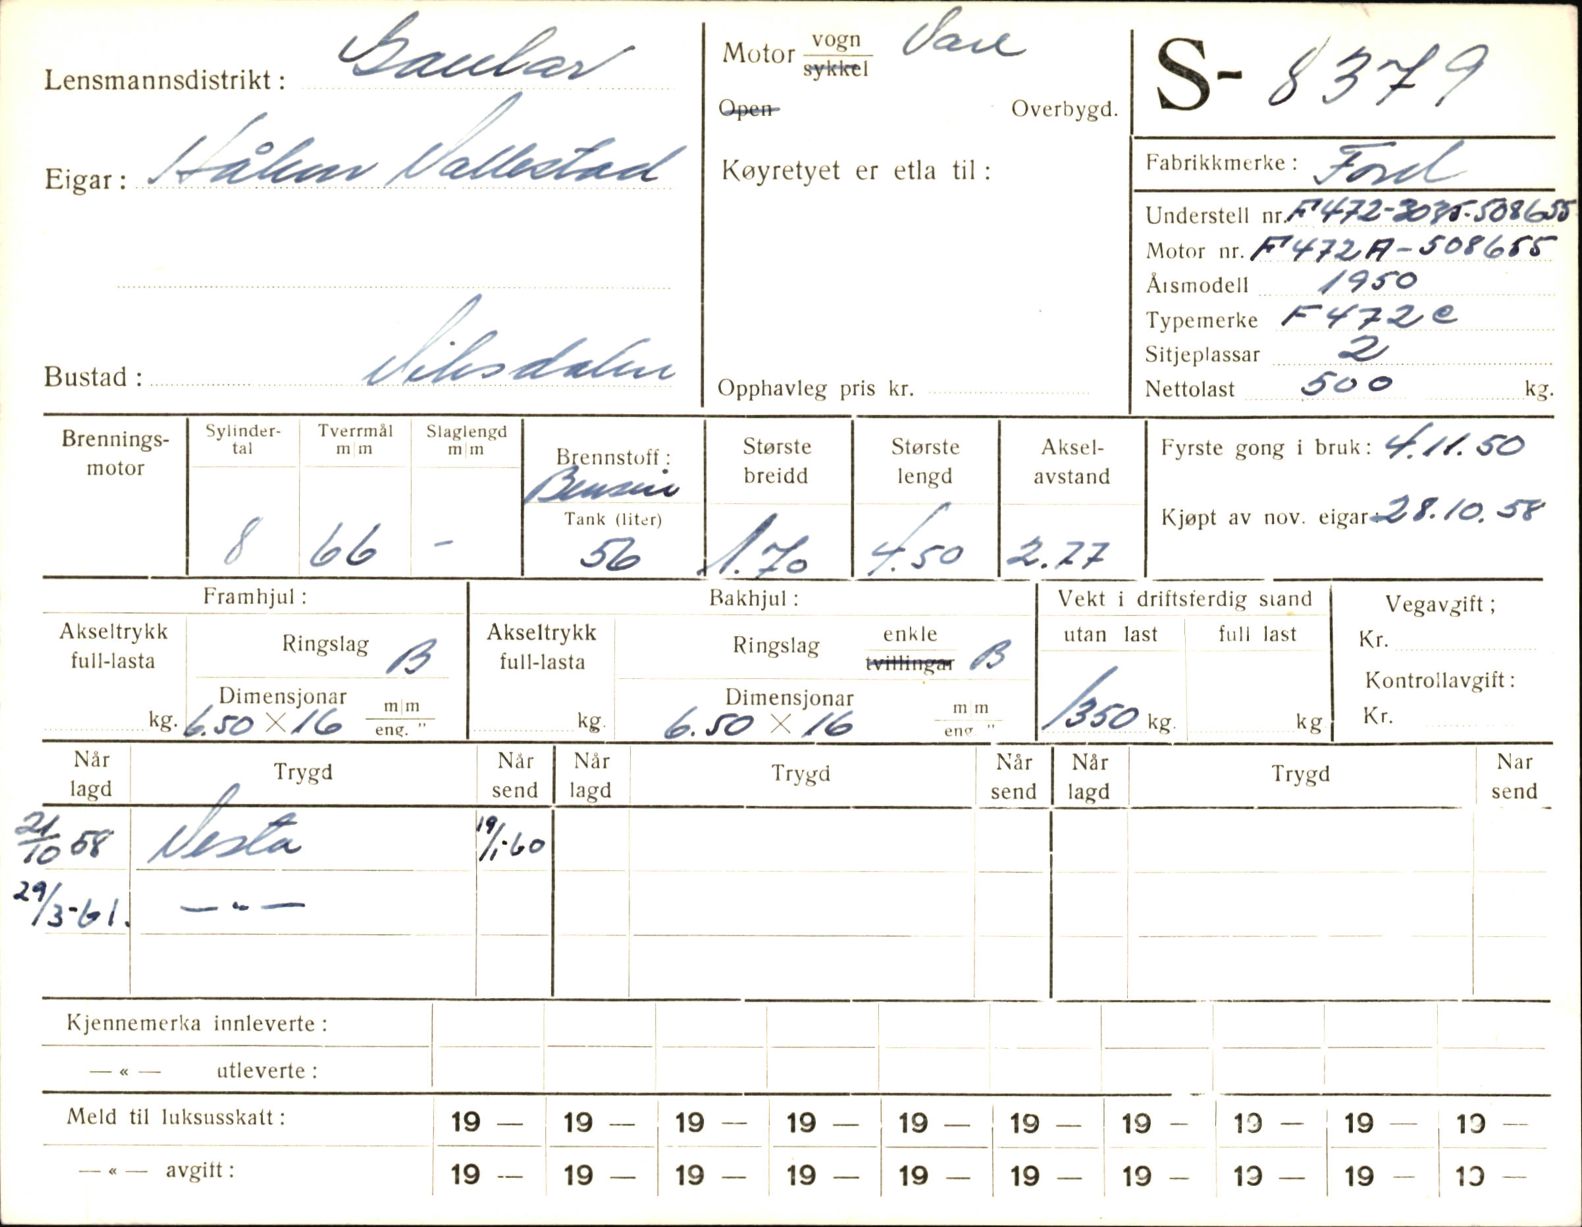 Lensmannsdistrikt: Gaular
Eigar: Håkon Vallestad
Bustad: Viksdalen
Motor vogn Vare
sykkel
Open Overbygd.
Køyretyet er etla til:
Opphavleg pris kr.
S- 8379
Fabrikkmerke: Ford
Understell nr. F472-3035-508655
Motor nr. F472A-508655
Årsmodell 1950
Typemerke F472C
Sitjeplassar 2
Nettolast 500 kg.
Brennings-
motor
Sylinder-
tal
8
Tverrmål
m|m
66
Slaglengd
m|m
-
Brennstoff:
Bensin
Tank (liter)
56
Største
breidd
1.70
Største
lengd
4.50
Aksel-
avstand
2.77
Fyrste gong i bruk: 4.11.50
Kjøpt av nov. eigar: 28.10.58
Framhjul:
Akseltrykk
full-lasta
kg.
Ringslag B
Dimensjonar m|m
6.50 × 16 eng. "
Bakhjul:
Akseltrykk
full-lasta
kg.
Ringslag enkle B
tvillingar
Dimensjonar m m
6.50 × 16 eng "
Vekt i driftsferdig stand
utan last full last
1350 kg. kg
Vegavgift;
Kr.
Kontrollavgift:
Kr.
Når
lagd
Trygd
Når
send
Når
lagd
Trygd
Når
send
Når
lagd
Trygd
Nar
send
21/10 58 Vesta 19/1-60
29/3-61. — " —
Kjennemerka innleverte:
— « — utleverte:
Meld til luksusskatt: 19 — 19 — 19 — 19 — 19 — 19 — 19 — 19 — 19 — 19 —
— « — avgift: 19 — 19 — 19 — 19 — 19 — 19 — 19 — 19 — 19 — 19 —